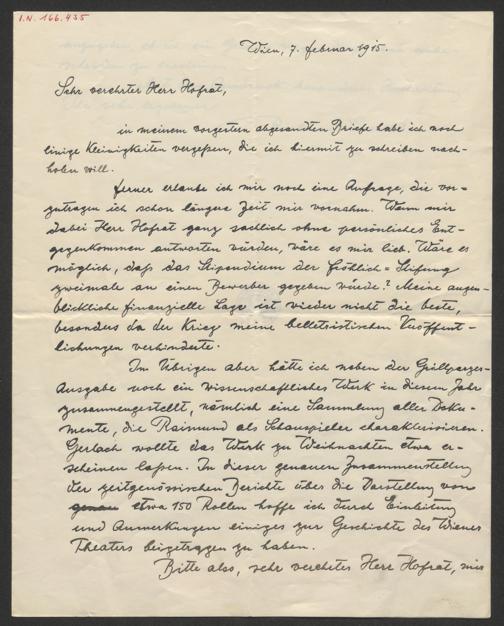 I.N. 166.435
Wien, 7. februar 1915.
Sehr verehrter Herr Hofrat,
in meinem vorgestern abgesandten Briefe habe ich noch
einige Kleinigkeiten vergeßen, die ich hiermit zu schreiben nach-
holen will.
ferner erlaube ich mir noch eine Anfrage, die vor-
zutragen ich schon längere Zeit mir vornahm. Wenn mir
dabei Herr Hofrat ganz sachlich ohne persönliches Ent-
gegenkommen antworten würden, wäre es mir lieb. Wäre es
möglich, daß das Stipendium der fröhlich-Stiftung
zweimale an einen Bewerber gegeben würde? Meine augen-
blickliche finanzielle Lage ist wieder nicht die beste,
besonders da der Krieg meine belletristischen Veröffent-
lichungen verhinderte.
Im Übrigen aber hätte ich neben der Grillparzer-
Ausgabe noch ein wissenschaftliches Werk in diesem Jahr
zusammengestellt, nämlich eine Sammlung aller Doku-
mente, die Raimund als Schauspieler charakterisieren.
Gerlach wollte das Werk zu Weihnachten etwa er-
scheinen laßen. In dieser genauen Zusammenstellung
der zeitgenössischen Berichte über die Darstellung von
etwa 150 Rollen hoffe ich durch Einleitung
und Anmerkungen einiges zur Geschichte des Wiener
Theaters beigetragen zu haben.
Bitte also, sehr verehrter Herr Hofrat, mir